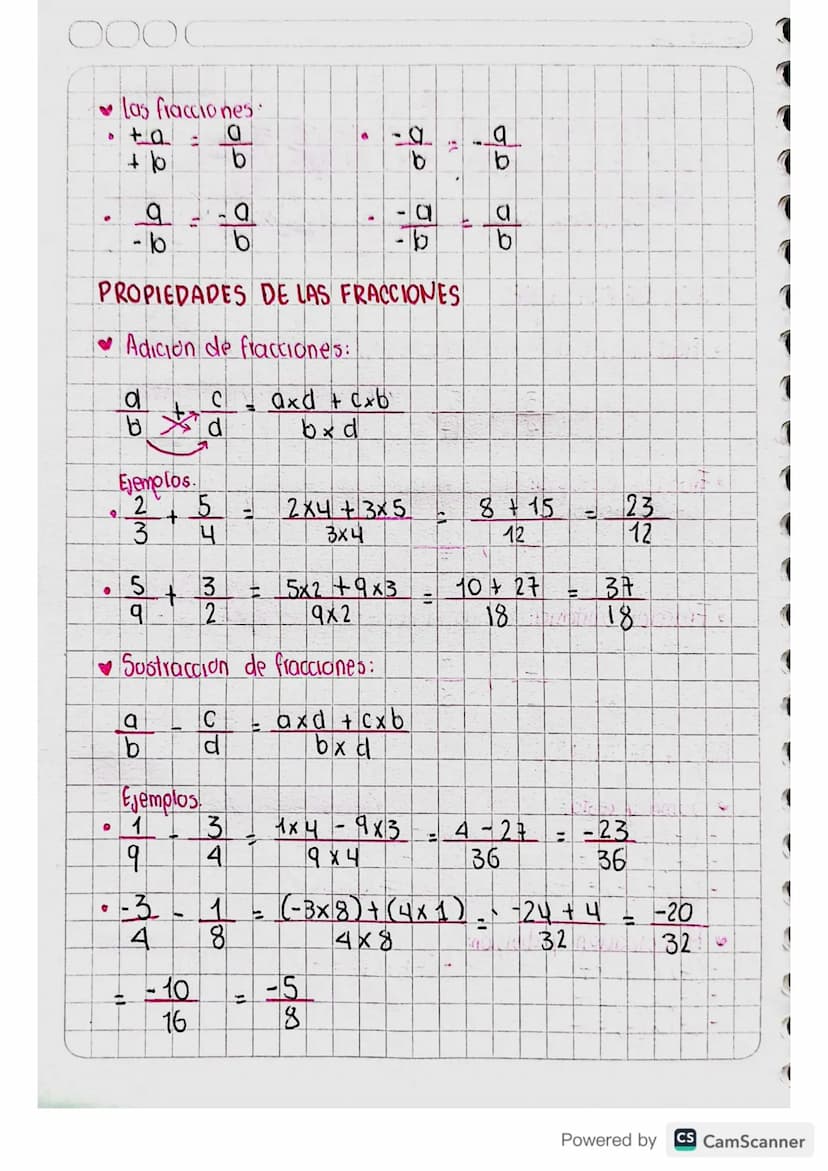 ♥ Las fracciones:
• +a/+b = a/b • -a/b = -a/b
• a/-b = -a/b • -a/-b = a/b
PROPIEDADES DE LAS FRACCIONES
♥ Adición de fracciones:
a/b + c/d = axd + cxb / bxd
Ejemplos.
• 2/3 + 5/4 = 2x4 + 3x5 / 3x4 = 8 + 15 / 12 = 23/12
• 5/9 + 3/2 = 5x2 + 9x3 / 9x2 = 10 + 27 / 18 = 37/18
♥ Sustracción de fracciones:
a/b - c/d = axd + cxb / bxd
Ejemplos.
• 1/9 - 3/4 = 1x4 - 9x3 / 9x4 = 4 - 27 / 36 = -23/36
• -3/4 - 1/8 = (-3x8)+(4x1) / 4x8 = -24 + 4 / 32 = -20/32
= -10/16 = -5/8
Powered by CS CamScanner